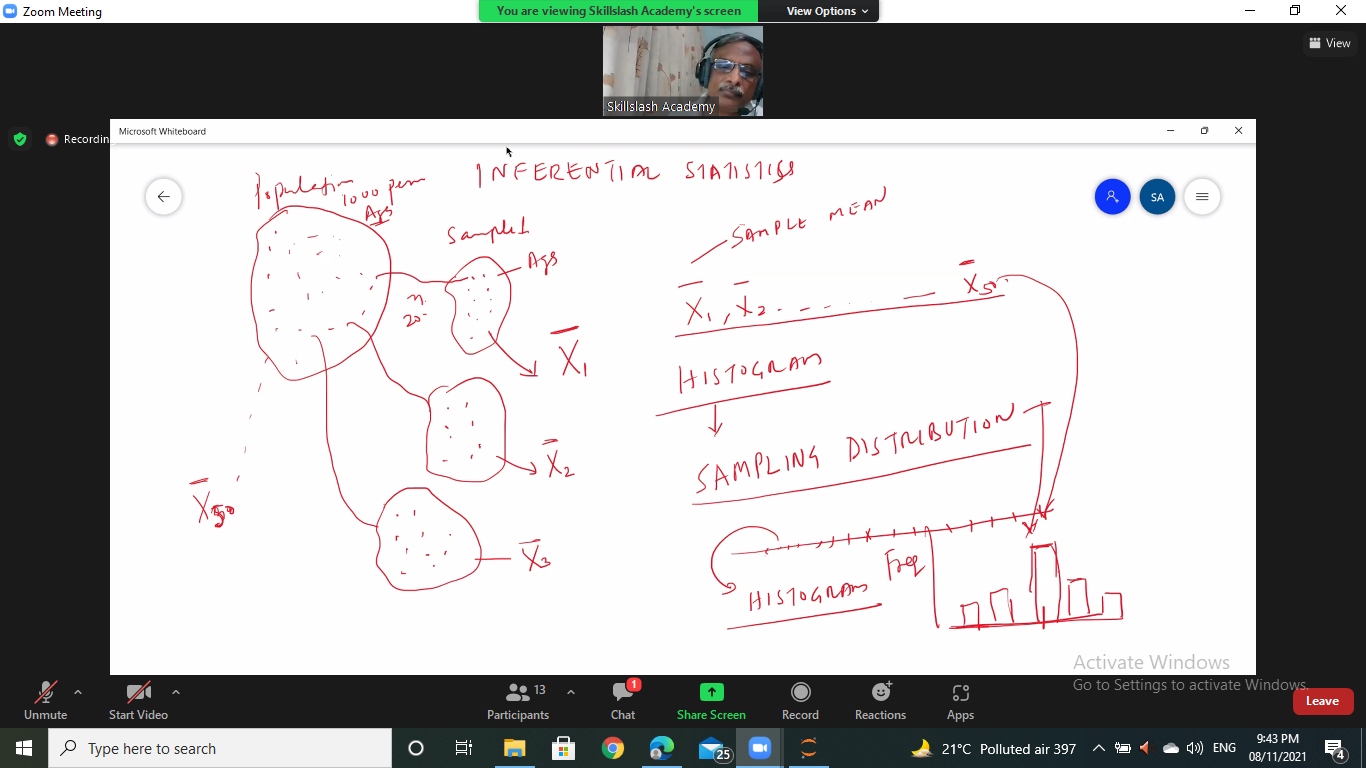 Zoom Meeting
You are viewing Skillslash Academy's screen
View Options
View
Skillslash Academy
Recording
Microsoft Whiteboard
INFERENTIAL STATISTICS
Population
1000
Age
Sample 1
Age
SAMPLE MEAN
SA
n
20
X̄1
X̄1, X̄2 . - - . . . — X̄50
HISTOGRAM
X̄2
SAMPLING DISTRIBUTION
X̄50
X̄3
HISTOGRAM
Freq
Activate Windows
Go to Settings to activate Windows.
Unmute
Start Video
Participants
13
Chat
1
Share Screen
Record
Reactions
Apps
Leave
Type here to search
25
21°C Polluted air 397
ENG
9:43 PM
08/11/2021
4